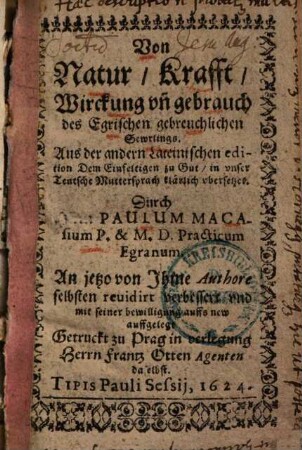 Von
Natur / Krafft /
Wirckung vñ gebrauch
des Egrischen gebreuchlichen
Sewrlings.
Aus der andern Lateinischen edi-
tion Dem Einfeltigen zu Gut / in vnser
Teutsche Muttersprach klärlich vbersetzet.
Durch
PAULUM MACA-
sium P. & M. D. Practicum
Egranum.
An jetzo von Ihme Authore
selbsten revidirt verbessert vnd
mit seiner bewilligung auffs new
auffgelegt
Getruckt zu Prag in verlegung
Herrn Frantz Otten Agenten
daselbst.
TIPIS Pauli Sessij, 1624.